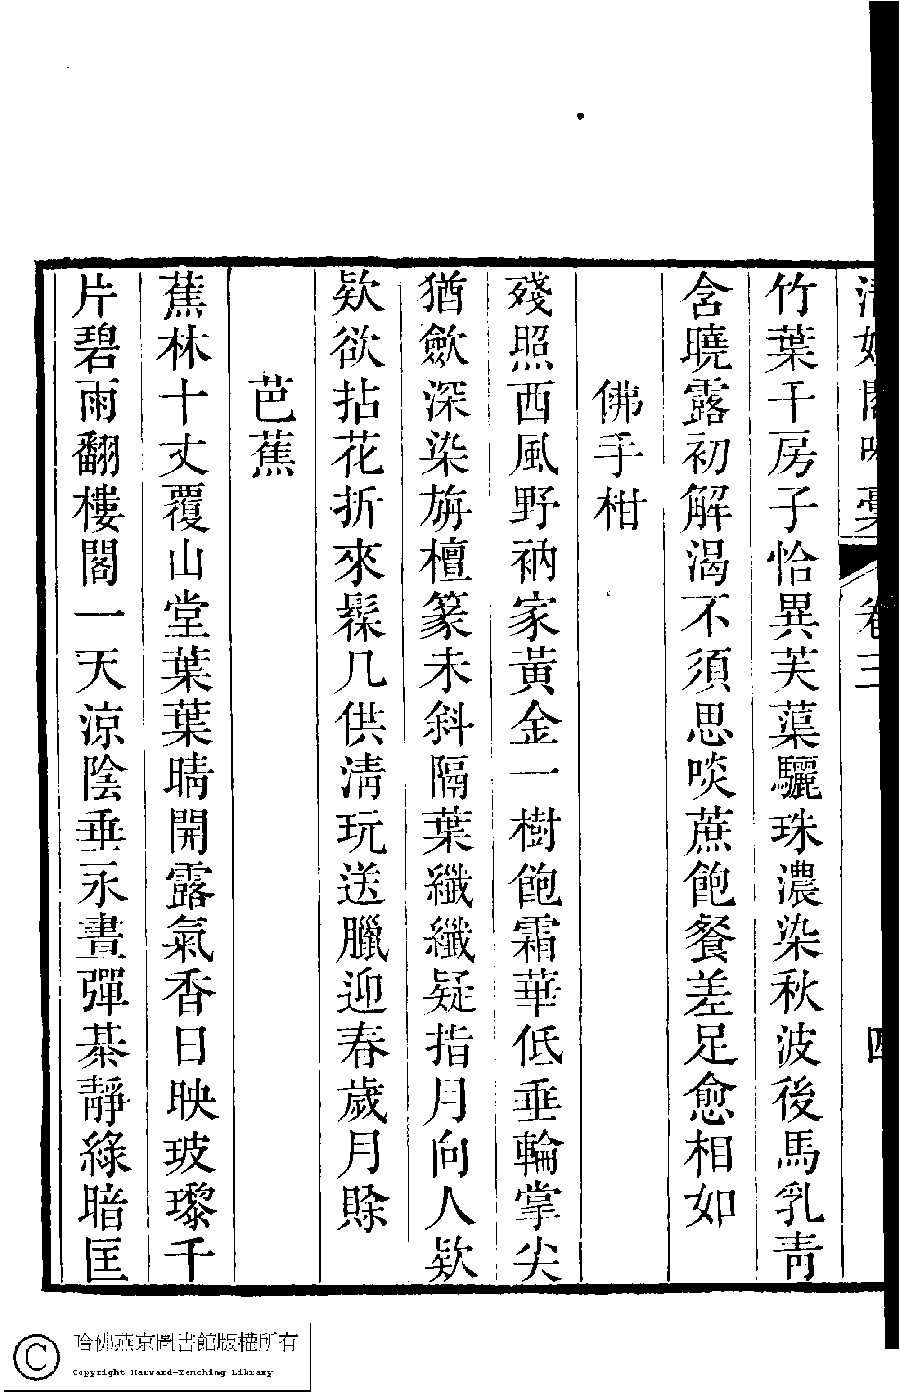 竹葉千房子恰異芙蕖驪珠濃染秋波後馬乳靑
含曉露初解渴不須思啖蔗飽餐差足愈相如
佛手柑
殘照西風野衲家黃金一樹飽霜華低垂輪掌尖
猶斂深染旃檀篆未斜隔葉纖纖疑指月向人欵
欵欲拈花折來髹几供淸玩送臘迎春歲月賒
芭蕉
蕉林十丈覆山堂葉葉晴開露氣香日映玻瓈千
片碧雨翻樓閣一天涼陰垂永晝彈棊靜綠暗匡
卷三
哈佛燕京圖書館版權所有
Copyright Harvard-Yenching Library